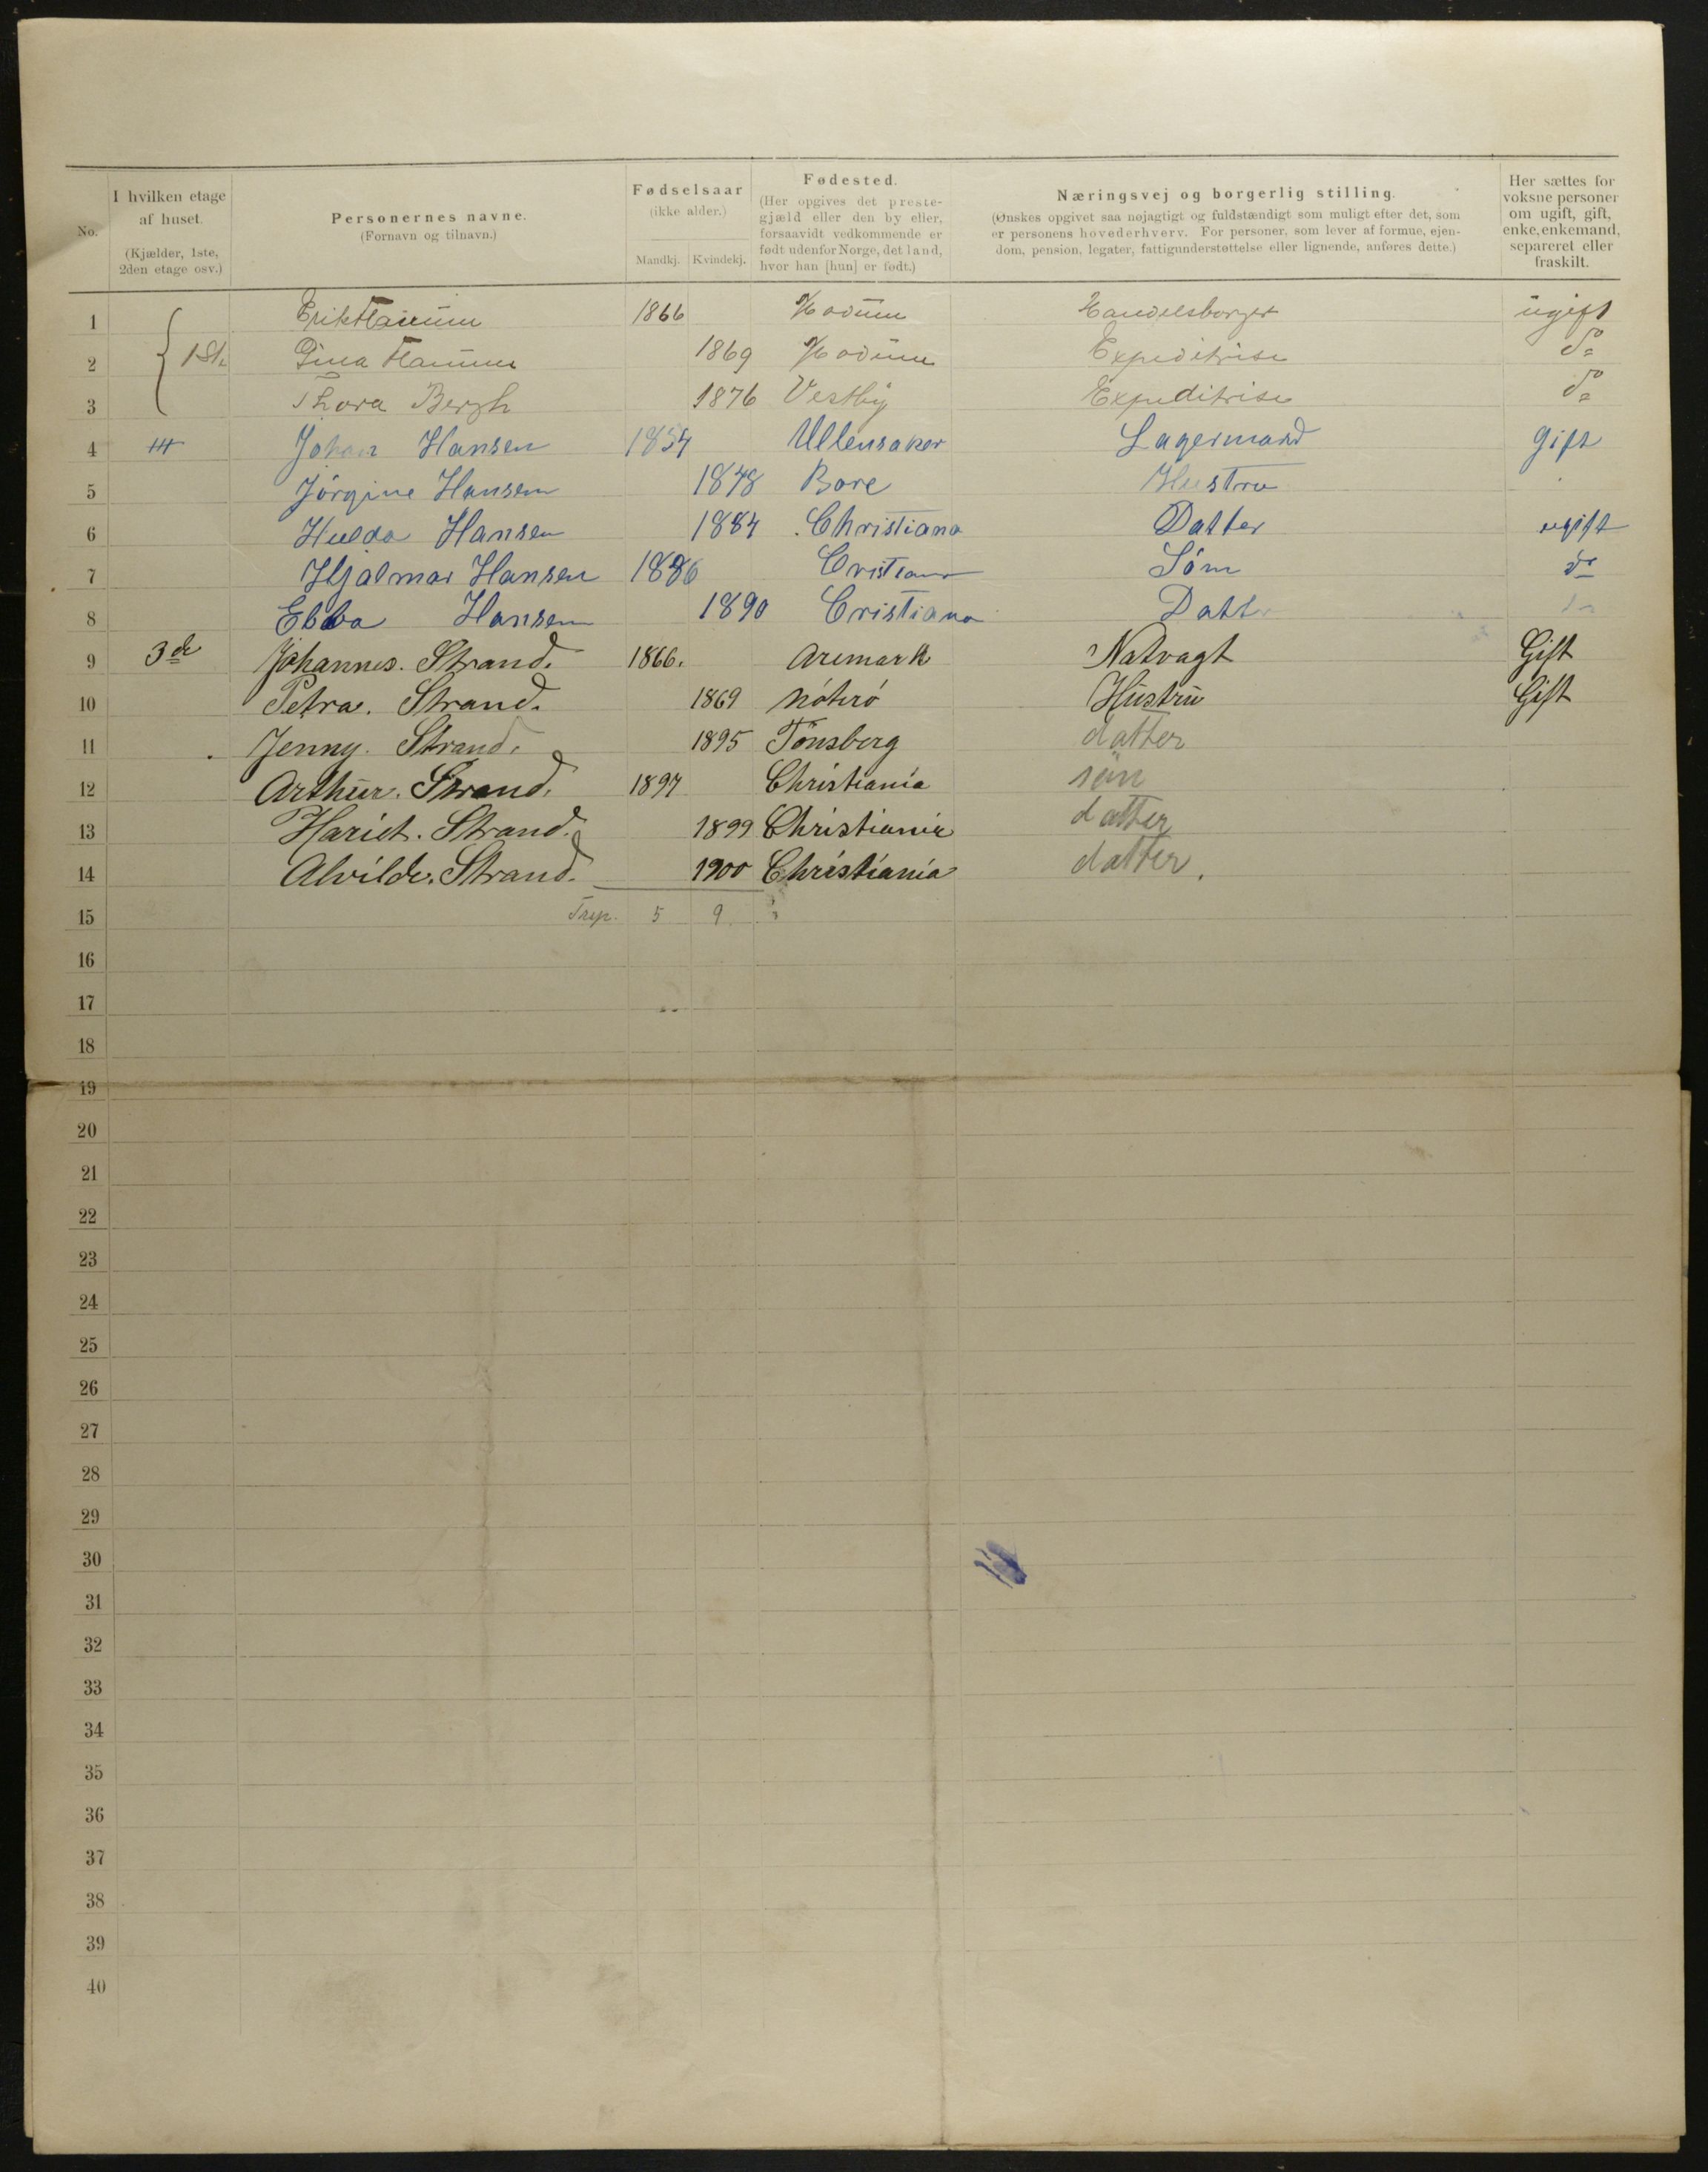 No.
I hvilken etage af huset. (Kjælder, 1ste, 2den etage osv.)
Personernes navne. (Fornavn og tilnavn.)
Fødselsaar (ikke alder.) Mandkj. Kvindekj.
Fødested. (Her opgives det prestegjæld eller den by eller, forsaavidt vedkommende er født udenfor Norge, det land, hvor han [hun] er født.)
Næringsvej og borgerlig stilling. (Ønskes opgivet saa nøjagtigt og fuldstændigt som muligt efter det, som er personens hovederhverv. For personer, som lever af formue, ejendom, pension, legater, fattigunderstøttelse eller lignende, anføres dette.)
Her sættes for voksne personer om ugift, gift, enke, enkemand, separeret eller fraskilt.
1 Erik 1866 Modum Handelsborger ugift
2 1St. Gina 1869 Modum Expeditrise do
3 Thora Bergh 1876 Vestby Expeditrise do
4 Johan Hansen 1854 Ullensaker Lagermand Gift
5 Jörgine Hansen 1848 Hustru
6 Hulda Hansen 1884 Christiana Datter ugift
7 Hjalmar Hansen 1886 Cristiana Söm do
8 Ebba Hansen 1890 Cristiana Datter do
9 3de Johannes. Strand. 1866. Aremark Natvagt Gift
10 Petra. Strand. 1869 Nöterö Hustru Gift
11 Jenny. Strand. 1895 Tönsberg datter
12 Arthur. Strand. 1897 Christiania sön
13 Hariet. Strand. 1899 Christiania datter
14 Alvilde. Strand. 1900 Christiania datter.
15 5 9.
16
17
18
19
20
21
22
23
24
25
26
27
28
29
30
31
32
33
34
35
36
37
38
39
40